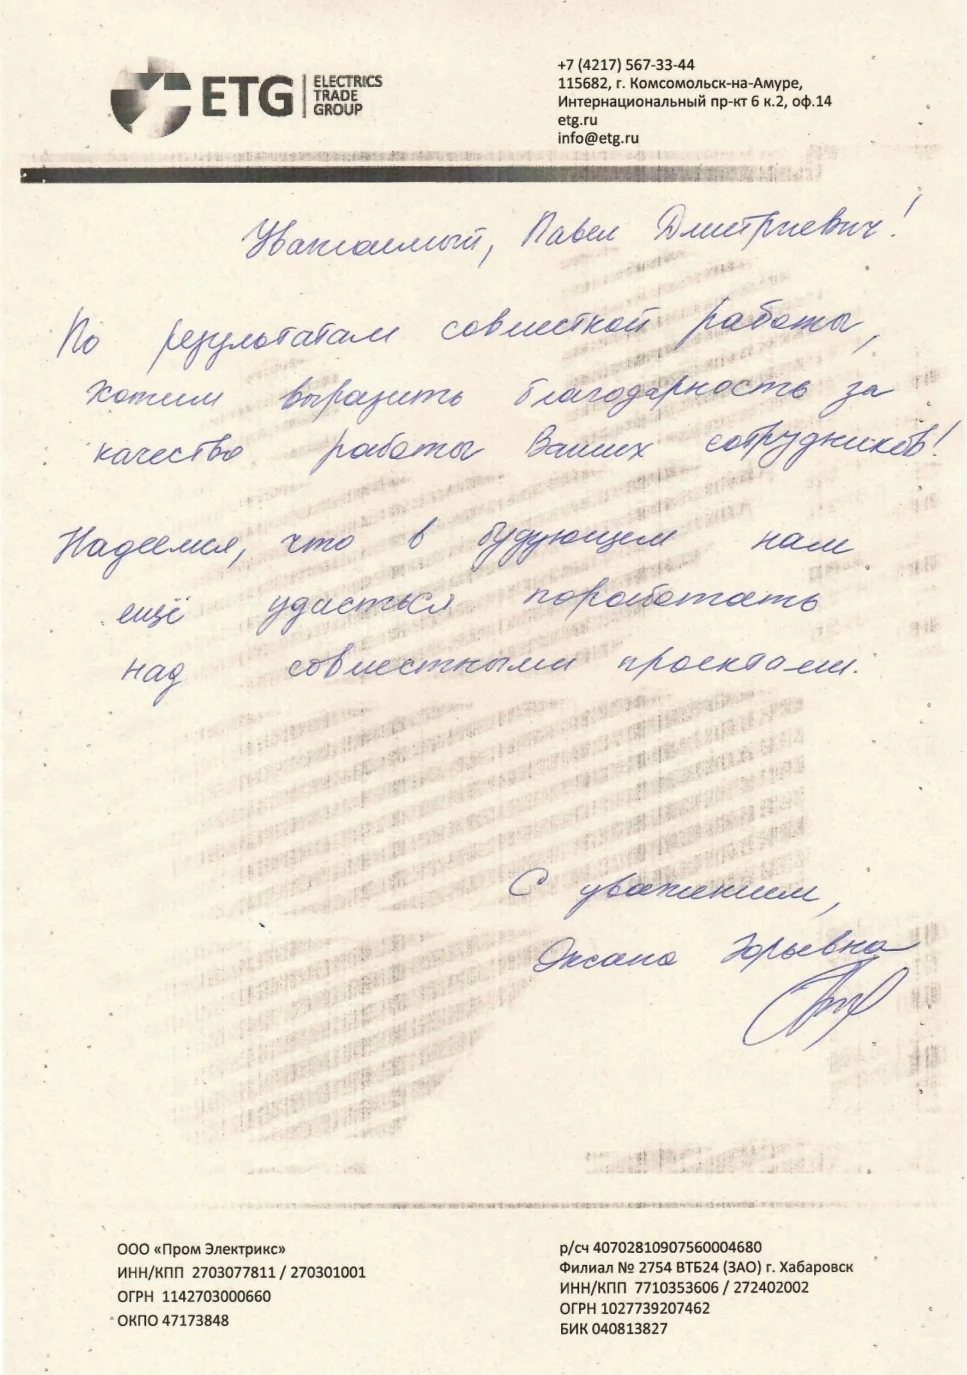 ETG
ELECTRICS
TRADE
GROUP
+7 (4217) 567-33-44
115682, г. Комсомольск-на-Амуре,
Интернациональный пр-кт 6 к.2, оф.14
etg.ru
info@etg.ru
Уважаемый, Павел Дмитриевич!
По результатам совместной работы,
хотим выразить благодарность за
качество работы Ваших сотрудников!
Надеемся, что в будующем нам
ещё удасться поработать
над совместными проектами.
С уважением,
Оксана Юрьевна
ООО «Пром Электрикс»
ИНН/КПП 2703077811 / 270301001
ОГРН 1142703000660
ОКПО 47173848
р/сч 40702810907560004680
Филиал № 2754 ВТБ24 (ЗАО) г. Хабаровск
ИНН/КПП 7710353606 / 272402002
ОГРН 1027739207462
БИК 040813827